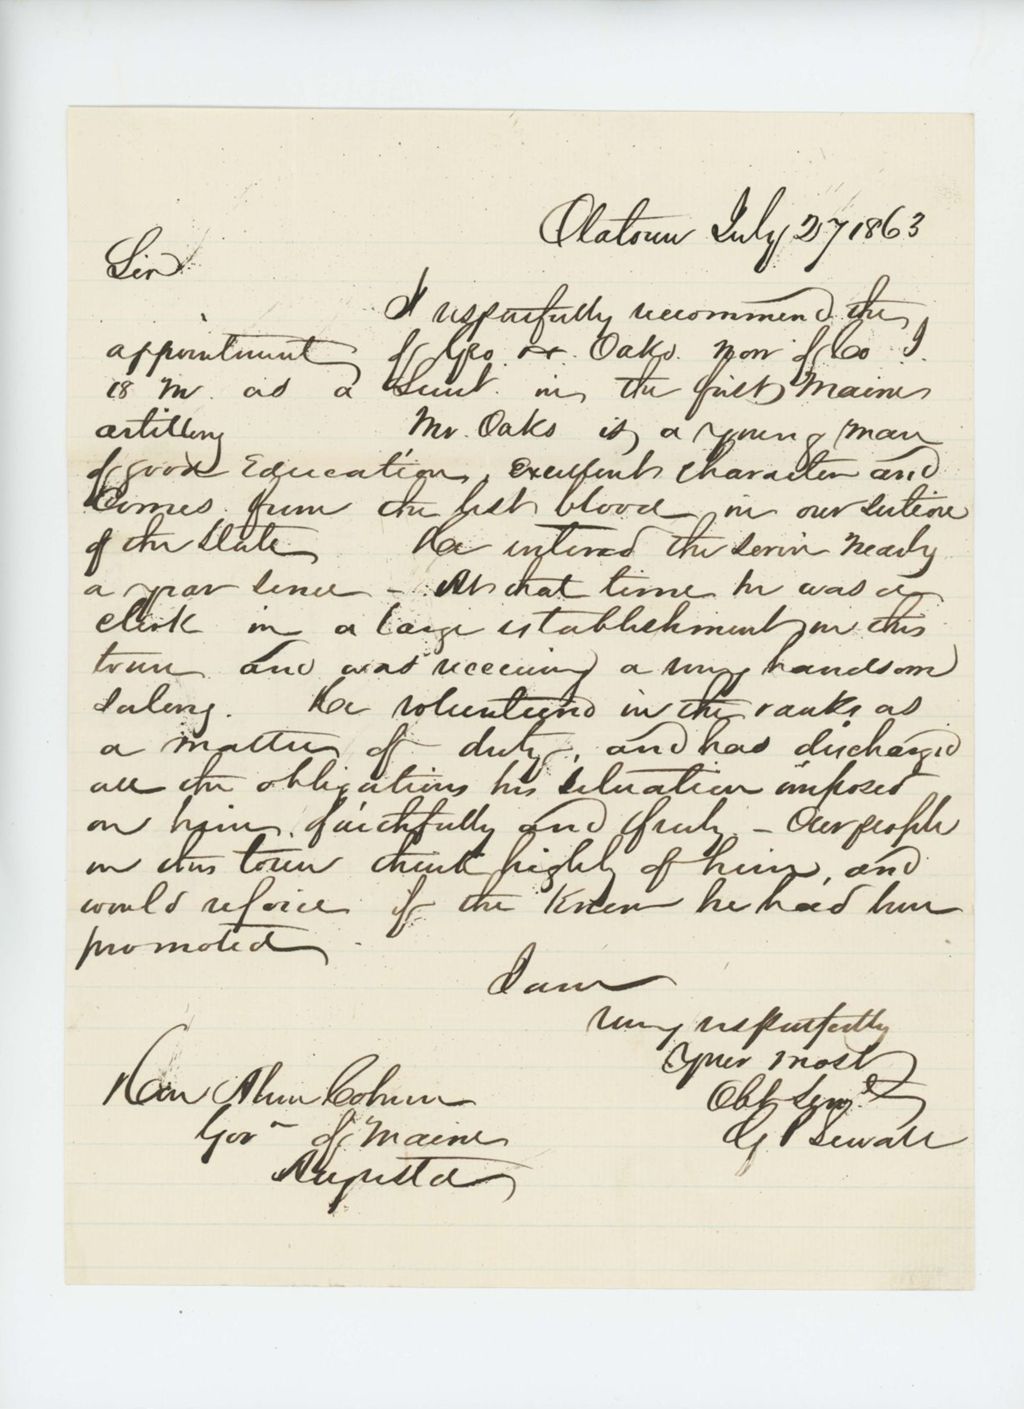 Oldtown July 27 1863
Sir
I respectfully recommend the
appointment of Geo. Oaks. now of Co I.
18 M. as a Lieut. in the first Maine
artillery Mr. Oaks is a young man
of good Education, excellent character and
Comes from the best blood in our section
of the State He entered the service nearly
a year since - At that time he was a
clerk in a large establishment in this
town and was receiving a very handsome
salary. He volunteered in the ranks as
a matter of duty, and has discharged
all the obligations his situation imposed
on him, faithfully and freely - Our people
in this town think highly of him, and
would rejoice if the knew he had been
promoted.
I am
very respectfully
Your most
Obt Servt
G P Sewall
Hon Abner Coburn
Govn of Maine
Augusta